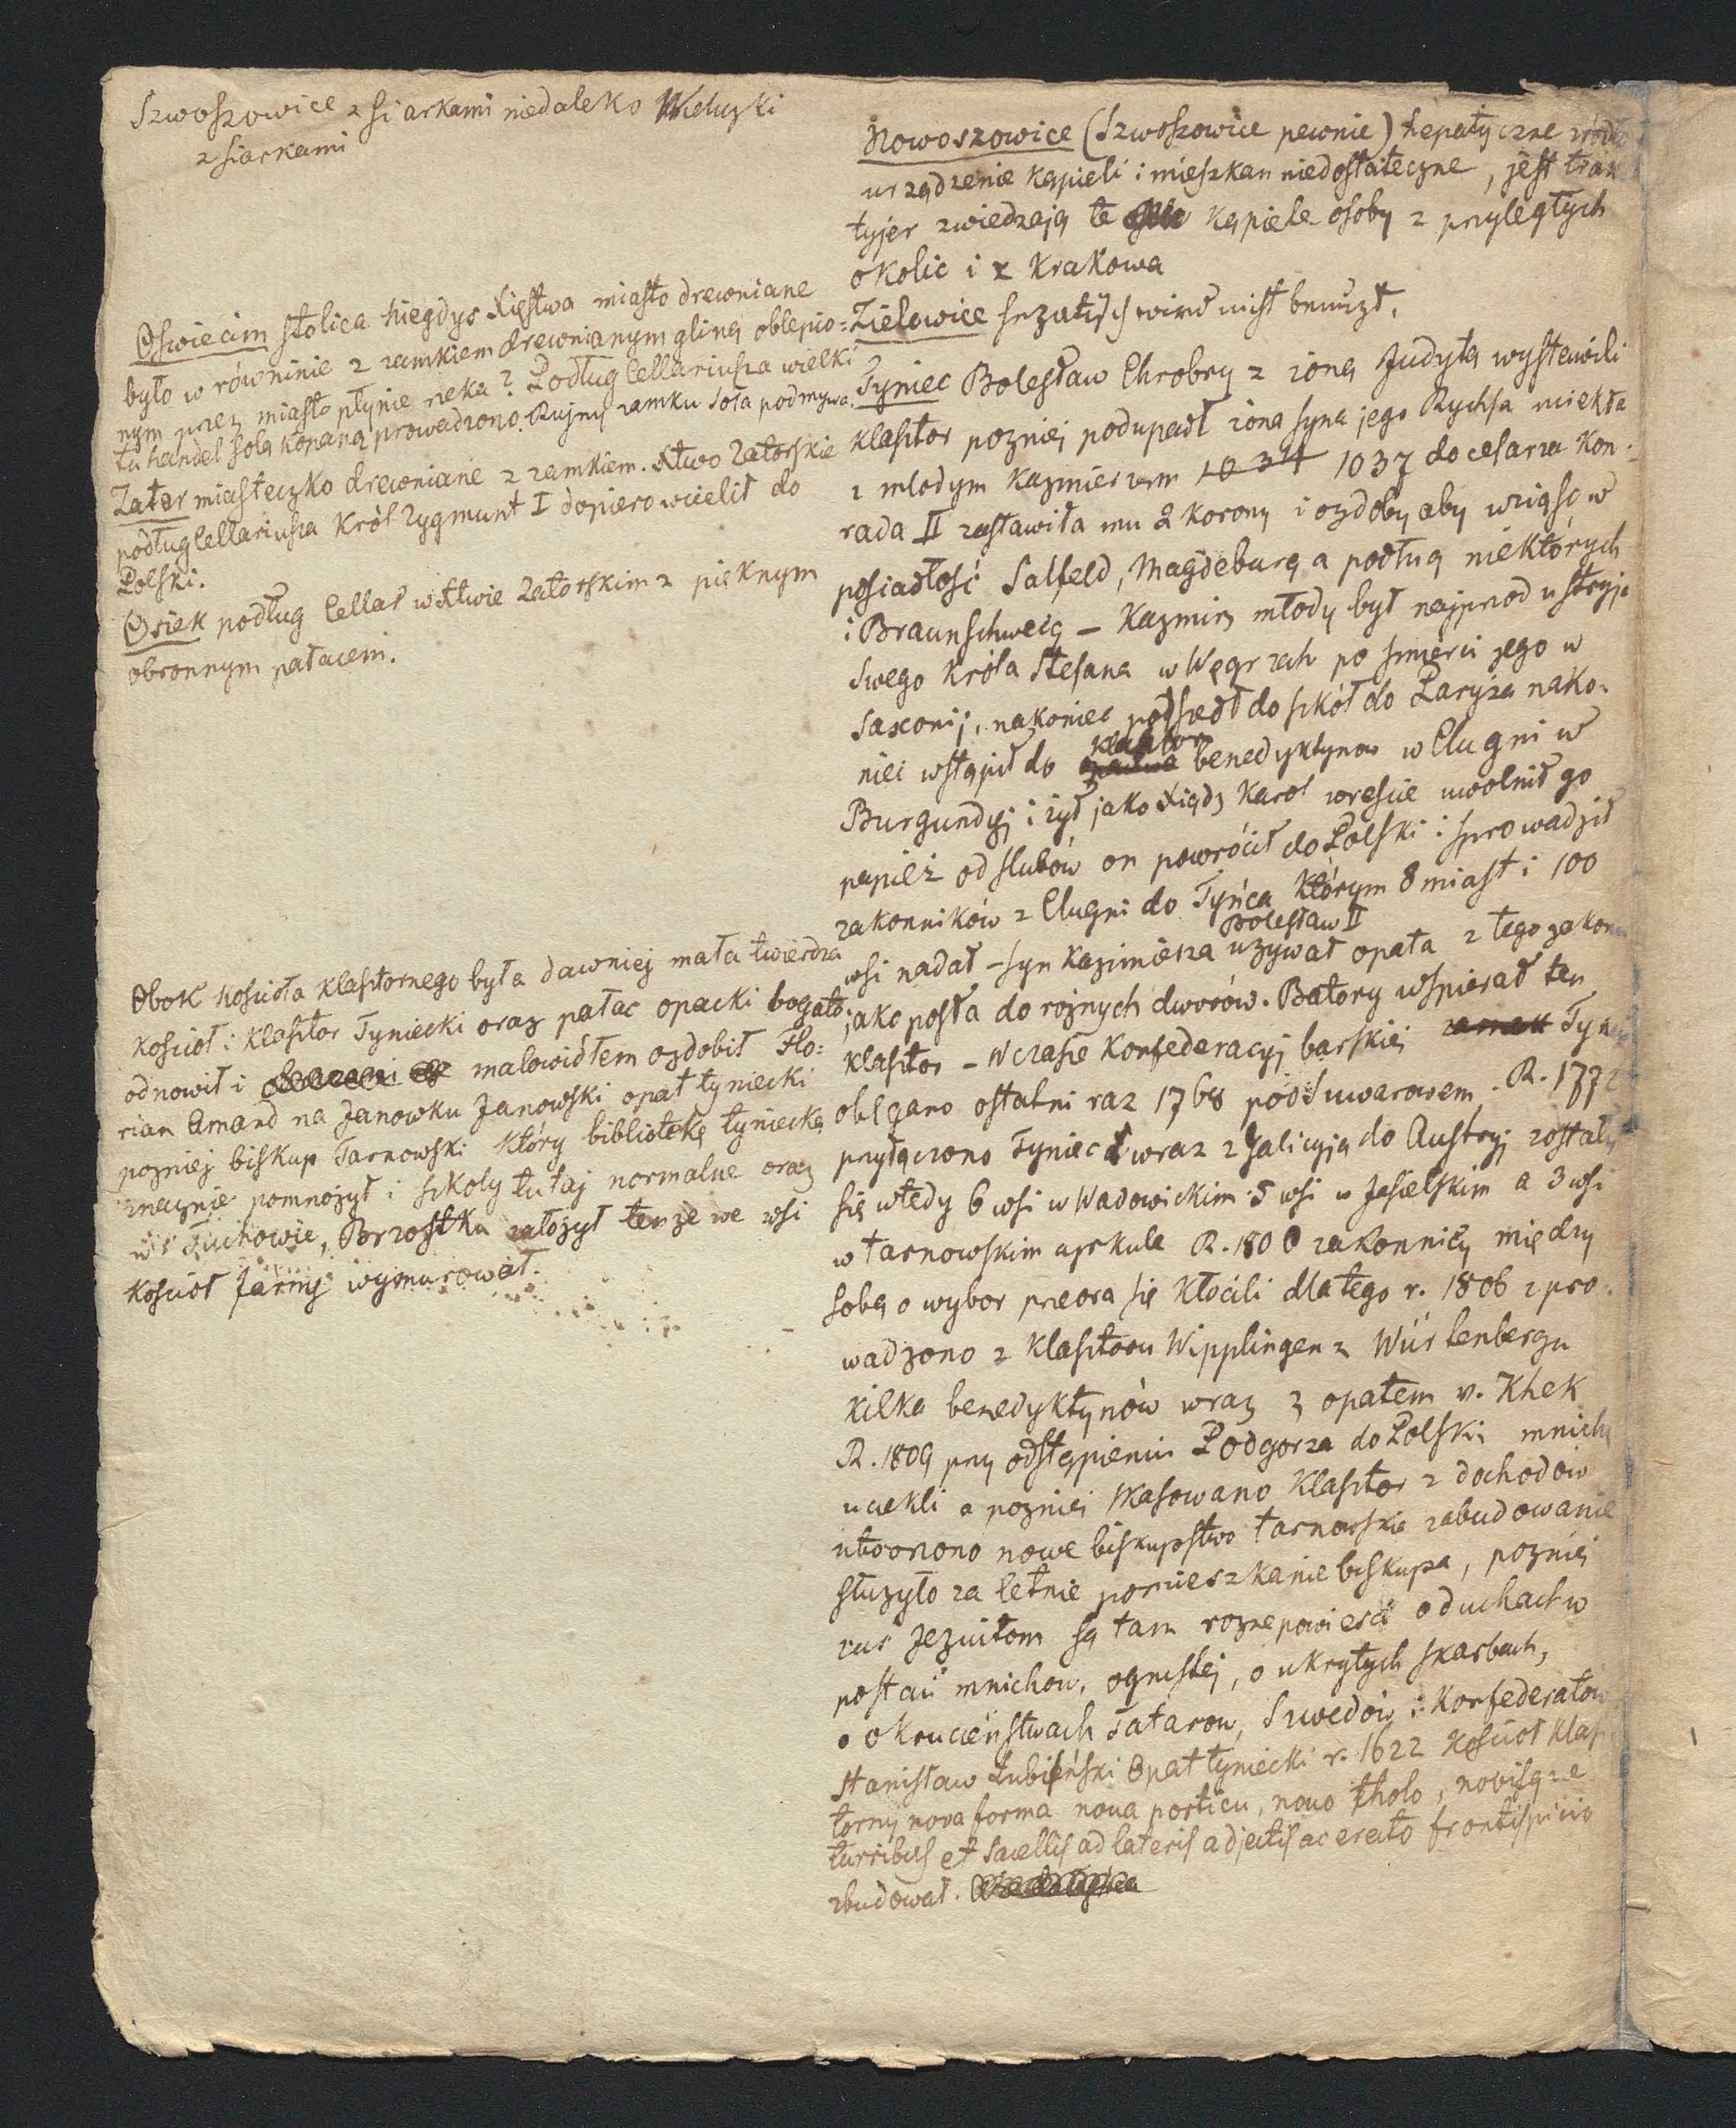 Szwoszowice z siarkami niedaleko Wieliczki
z siarkami
Oswiecim stolica niegdys Xięstwa miasto drewniane
było w równinie z zamkiem drewnianym gliną oblepio=
nym przez miasto płynie rzeka? Podług Cellariusza wielki
tu handel solą kopaną prowadzono. Rujny zamku Soła podmywa.
Zator miasteczko drewniane z zamkiem. Xtwo Zatorskie
podług Cellariusza Król Zygmunt I dopiero wcielił do
Polski.
Osiek podług Cellar w Xtwie Zatorskim z pięknym
obronnym pałacem.
Obok kościoła klasztornego była dawniej mała twierdza
kościoł i klasztor Tyniecki oraz pałac opacki bogato
odnowił i malowidłem ozdobił Flo:
rian Amand na Janowku Janowski opat tyniecki
pozniej biskup Tarnowski który bibliotekę tyniecką
znacznie pomnożył i szkoły tutaj normalne oraz
w Tuchowie, Brzostku założył tenże we wsi
kościoł farny wymurował.
Nowoszowice (Szwoszowice pewnie) hepatyczne źródło
urządzenie kąpieli i mieszkan niedostateczne, jest trak
tyjer zwiedzają te kąpiele osoby z przyległych
okolic i z Krakowa
Zielowice wird nist benuzt.
Tyniec Bolesław Chrobry z zoną Judytą wystawili
klasztor pozniej podupadł zona syna jego Rychsa uciekła
z młodym Kazmierzem 1034 1037 do cesarza Kon:
rada II zastawiła mu 2 korony i ozdoby aby wziąsc w
posiadłość Salfeld, Magdeburg a podług niektórych
i Braunschweig – Kazmirz młody był najprzod u stryja
swego Króla Stefana w Węgrzech po smierci jego w
Saxonij, nakoniec poszedł do szkół do Paryża nako=
niec wstąpił do klasztoru benedyktynow w Clugni w
Burgundyj i żył jako Xiądz Karol wreszcie uwolnił go
papież od slubów on powrócił do Polski i sprowadził
zakonników z Clugni do Tyńca którym 8 miast i 100
wsi nadał – syn Kazimiesza Bolesław II uzywał opata z tego zakonu
jako posła do rożnych dworów. Batory wspierał ten
klasztor – W czasie Konfederacyj barskiej zamek Tyniec
oblęgano ostatni raz 1768 pod Suwarowem. R. 1772
przyłączono Tyniec wraz z Galicyją do Austryj zostały
się wtedy 6 wsi w Wadowickim 5 wsi w Jasielskim a 3 wsi
w tarnowskim cyrkule R. 1800 zakonnicy między
sobą o wybor preora się kłócili dlatego r. 1806 spro=
wadzono z klasztoru Wipplingen z Würtenbergu
kilka benedyktynów wraz z opatem v. Khek
R. 1809 przy odstąpieniu Podgorza do Polski mnichy
uciekli a pozniej skasowano klasztor z dochodów
utworzono nowe biskupstwo tarnowskie zabudowanie
służyło za letnie pomieszkanie biskupa, pozniej
zas Jezuitom są tam rozne powiesci o duchach w
postaci mnichow, ognistej, o ukrytych skarbach,
o okrucieństwach Tatarow, Szwedów i Konfederatów
Stanisław Łubiński Opat tyniecki r. 1622 kościoł klasz
torny nova forma nova porticu, novo tholo, novisque
turribus et sacellis ad lateris adjectis ac erecto frontispicio
zbudował.